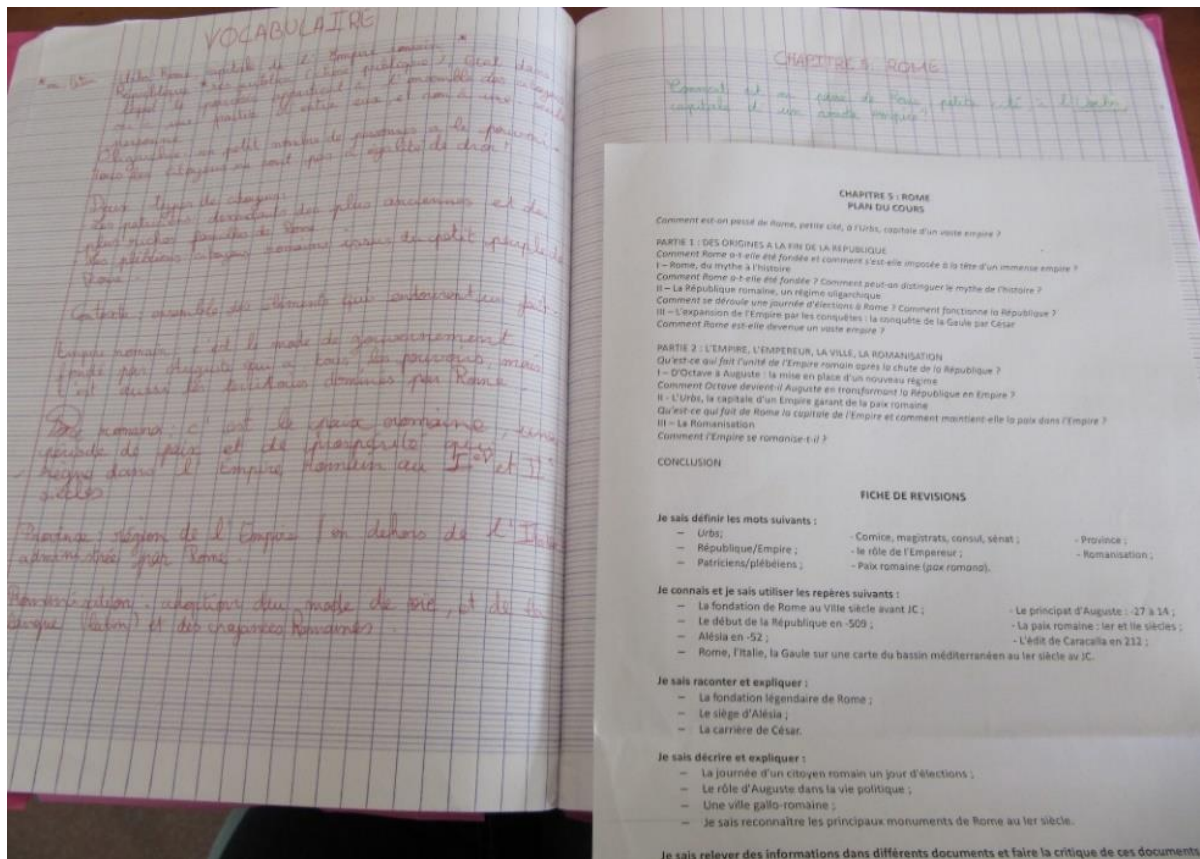 VOCABULAIRE
* en latin
Urbs, Rome capitale de l'Empire romain *
République * res publica (chose publique), état dans
lequel le pouvoir appartient à l'ensemble des citoyens
ou à une partie d'entre eux et non à une seule
personne
Oligarchie, un petit nombre de personnes a le pouvoir.
Tous les citoyens ne sont pas à égalité de droit
Deux types de citoyens
Les patriciens descendants des plus anciennes et des
plus riches familles de Rome
Les plébéiens citoyens romains issus du petit peuple de
Rome.
Contexte, ensemble des éléments qui entourent un fait.
Empire romain, c'est le mode de gouvernement
tous les pouvoirs, mais
c'est aussi les territoires dominés par Rome
romana, c'est la paix romaine, une
période de paix et de prospérité qui
règne dans l'Empire Romain au Ier et IIe
siècles
Province, région de l'Empire en dehors de l'Italie
administrée par Rome
Romanisation, adoption du mode de vie, et de la
langue (latin) et des croyances Romaines
CHAPITRE 5. ROME
Comment est on passé de Rome, petite cité à l'Urbs,
capitale d'un vaste empire?
CHAPITRE 5 : ROME
PLAN DU COURS
Comment est-on passé de Rome, petite cité, à l'Urbs, capitale d'un vaste empire ?
PARTIE 1 : DES ORIGINES A LA FIN DE LA REPUBLIQUE
Comment Rome a-t-elle été fondée et comment s'est-elle imposée à la tête d'un immense empire ?
I – Rome, du mythe à l'histoire
Comment Rome a-t-elle été fondée ? Comment peut-on distinguer le mythe de l'histoire ?
II – La République romaine, un régime oligarchique
Comment se déroule une journée d'élections à Rome ? Comment fonctionne la République ?
III – L'expansion de l'Empire par les conquêtes : la conquête de la Gaule par César
Comment Rome est-elle devenue un vaste empire ?
PARTIE 2 : L'EMPIRE, L'EMPEREUR, LA VILLE, LA ROMANISATION
Qu'est-ce qui fait l'unité de l'Empire romain après la chute de la République ?
I – D'Octave à Auguste : la mise en place d'un nouveau régime
Comment Octave devient-il Auguste en transformant la République en Empire ?
II - L'Urbs, la capitale d'un Empire garant de la paix romaine
Qu'est-ce qui fait de Rome la capitale de l'Empire et comment maintient-elle la paix dans l'Empire ?
III – La Romanisation
Comment l'Empire se romanise-t-il ?
CONCLUSION
FICHE DE REVISIONS
Je sais définir les mots suivants :
– Urbs; - Comice, magistrats, consul, sénat ; - Province ;
– République/Empire ; - le rôle de l'Empereur ; - Romanisation ;
– Patriciens/plébéiens ; - Paix romaine (pax romana).
Je connais et je sais utiliser les repères suivants :
– La fondation de Rome au VIIIe siècle avant JC ; - Le principat d'Auguste : -27 à 14 ;
– Le début de la République en -509 ; - La paix romaine : Ier et IIe siècles ;
– Alésia en -52 ; - L'édit de Caracalla en 212 ;
– Rome, l'Italie, la Gaule sur une carte du bassin méditerranéen au Ier siècle av JC.
Je sais raconter et expliquer :
– La fondation légendaire de Rome ;
– Le siège d'Alésia ;
– La carrière de César.
Je sais décrire et expliquer :
– La journée d'un citoyen romain un jour d'élections ;
– Le rôle d'Auguste dans la vie politique ;
– Une ville gallo-romaine ;
– Je sais reconnaître les principaux monuments de Rome au Ier siècle.
Je sais relever des informations dans différents documents et faire la critique de ces documents